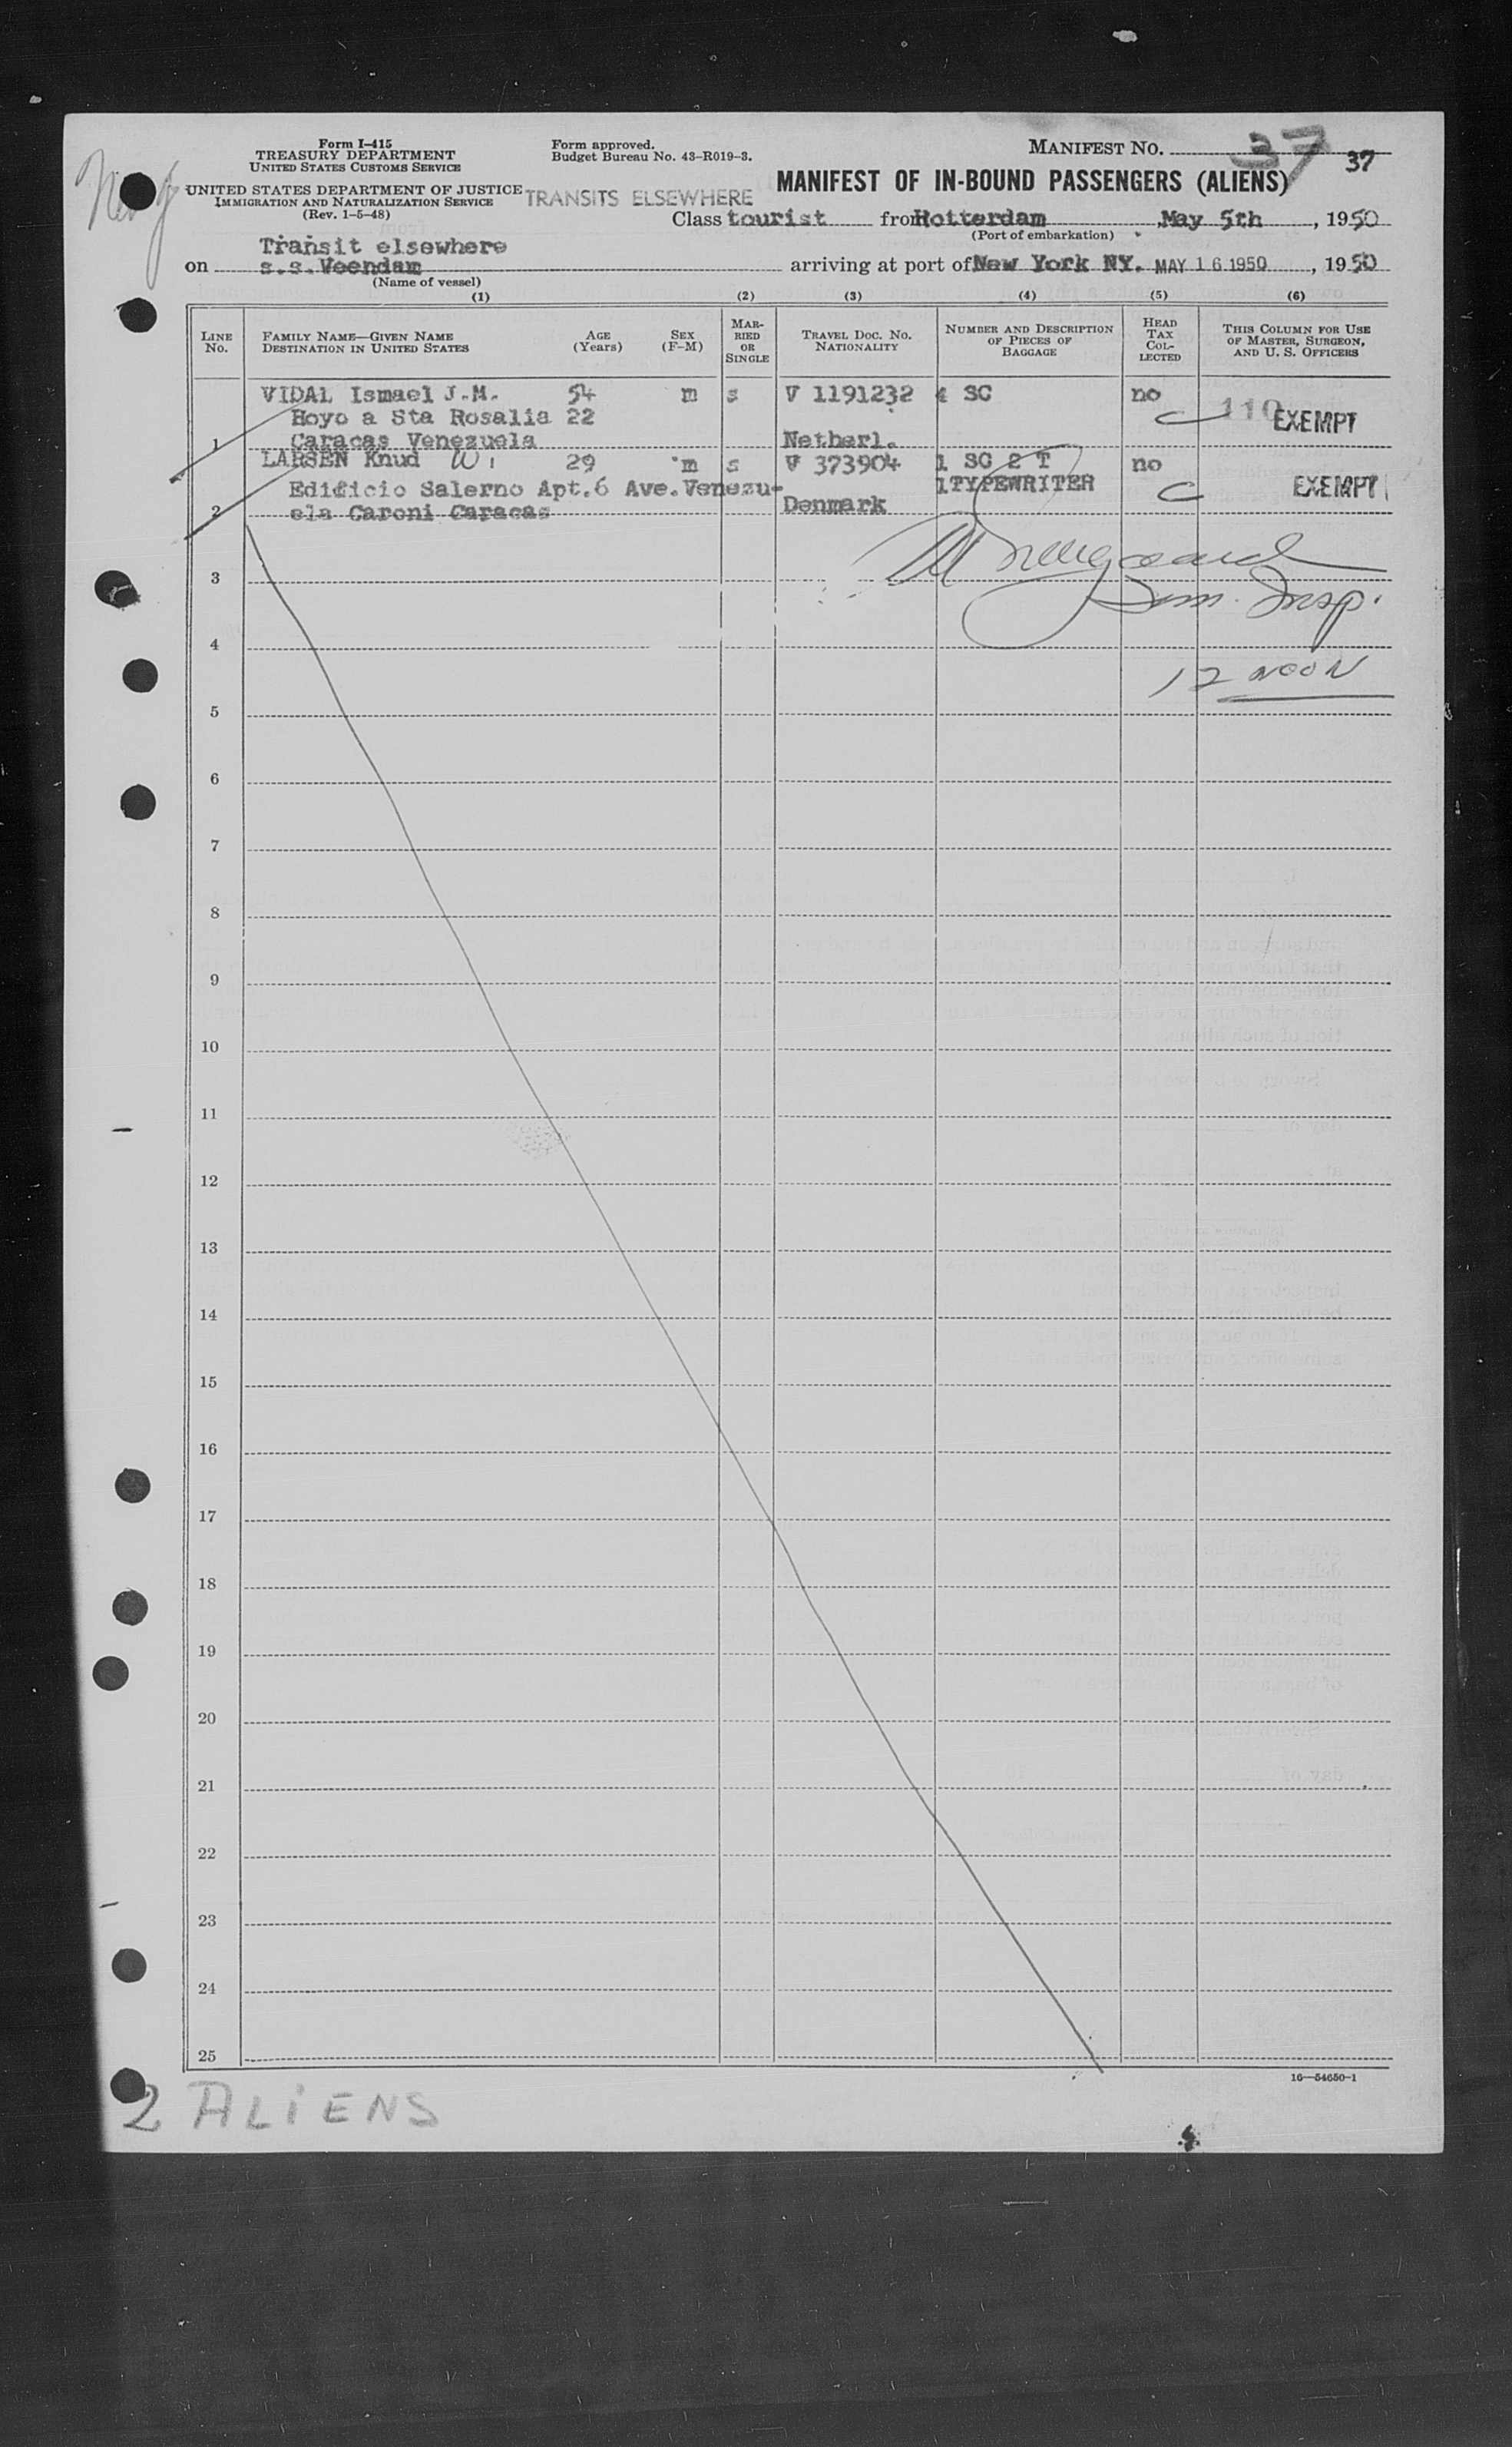 Form I-415
TREASURY DEPARTMENT
UNITED STATES CUSTOMS SERVICE
UNITED STATES DEPARTMENT OF JUSTICE
IMMIGRATION AND NATURALIZATION SERVICE
(Rev. 1-5-48)
Form approved.
Budget Bureau No. 43-R019-3.
MANIFEST No. 37
37
TRANSITS ELSEWHERE
MANIFEST OF IN-BOUND PASSENGERS (ALIENS)
Class tourist from Rotterdam May 5th, 1950
(Port of embarkation)
Transit elsewhere
on s.s. Veendam arriving at port of New York NY. MAY 16 1950, 1950
(Name of vessel)
(1) (2) (3) (4) (5) (6)
LINE No. FAMILY NAME—GIVEN NAME DESTINATION IN UNITED STATES AGE (Years) SEX (F-M) MARRIED OR SINGLE TRAVEL DOC. No. NATIONALITY NUMBER AND DESCRIPTION OF PIECES OF BAGGAGE HEAD TAX COLLECTED THIS COLUMN FOR USE OF MASTER, SURGEON, AND U. S. OFFICERS
VIDAL Ismael J.M. 54 m s V 1191232 4 SC no
Hoyo a Sta Rosalia 22 C 110 EXEMPT
1 Caracas Venezuela Netherl.
LARSEN Knud W. 29 m s V 373904 1 SC 2 T no
Edificio Salerno Apt.6 Ave.Venezu- 1TYPEWRITER C EXEMPT
2 ela Caroni Caracas Denmark
3
Imm. Insp.
4
12 NOON
5
6
7
8
9
10
11
12
13
14
15
16
17
18
19
20
21
22
23
24
25
16—54650-1
2 ALIENS